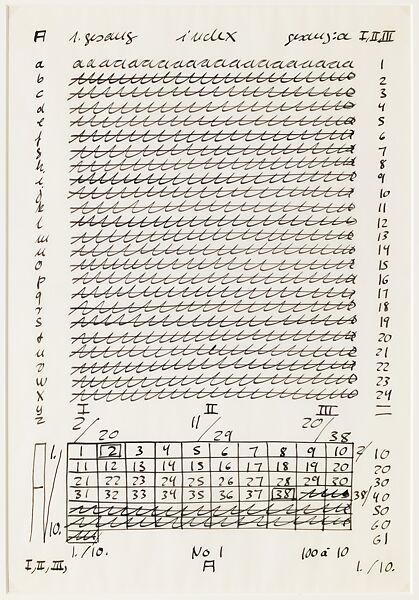 A 1. gesang index gesang: a I, II, III
a 1
b 2
c 3
d 4
e 5
f 6
g 7
h 8
i 9
j 10
k 11
l 12
m 13
n 14
o 15
p 16
q 17
r 18
s 19
t 20
u 21
v 22
w 23
x 24
y
z
I II III
2/20 11/29 20/38
1. 1 2 3 4 5 6 7 8 9 10 10
11 12 13 14 15 16 17 18 19 20 20
21 22 23 24 25 26 27 28 29 30 30
A 31 32 33 34 35 36 37 38 38/ 40
50
10. 60
61
1./10. No 1 100 à 10
I, II, III, A 1./10.